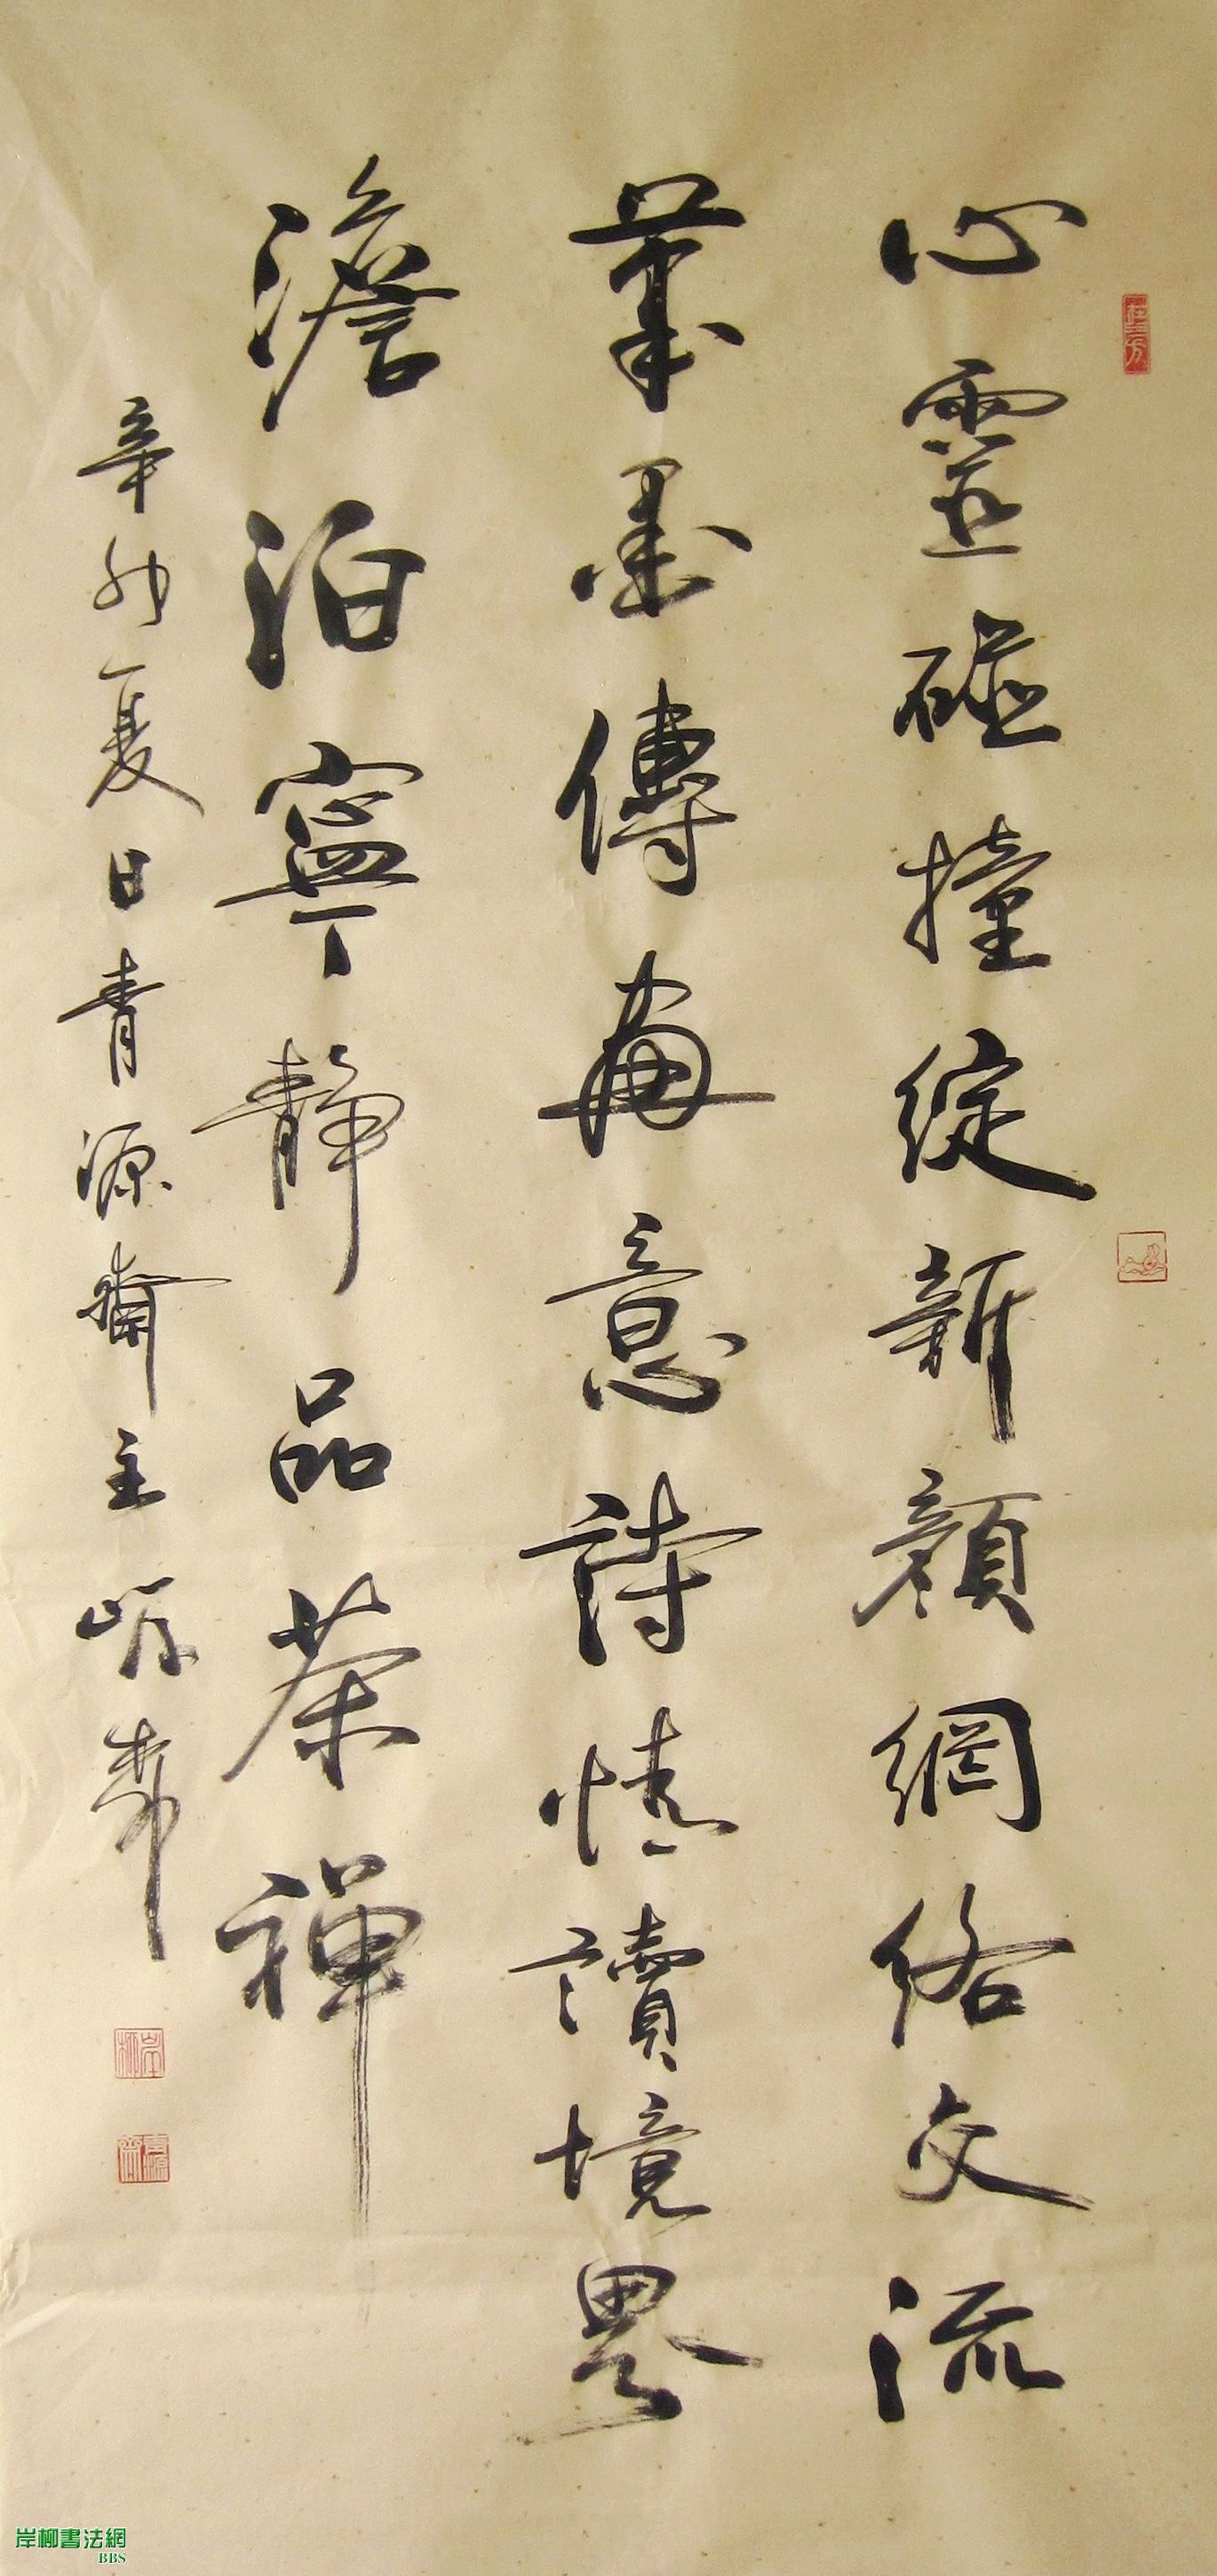 心靈碰撞綻新顏網絡交流
筆墨傳畫意詩情讀境界
澹泊寧靜品茶禪
辛卯夏日青源齋主岸柳
岸柳
青源齋
岸柳書法網
BBS